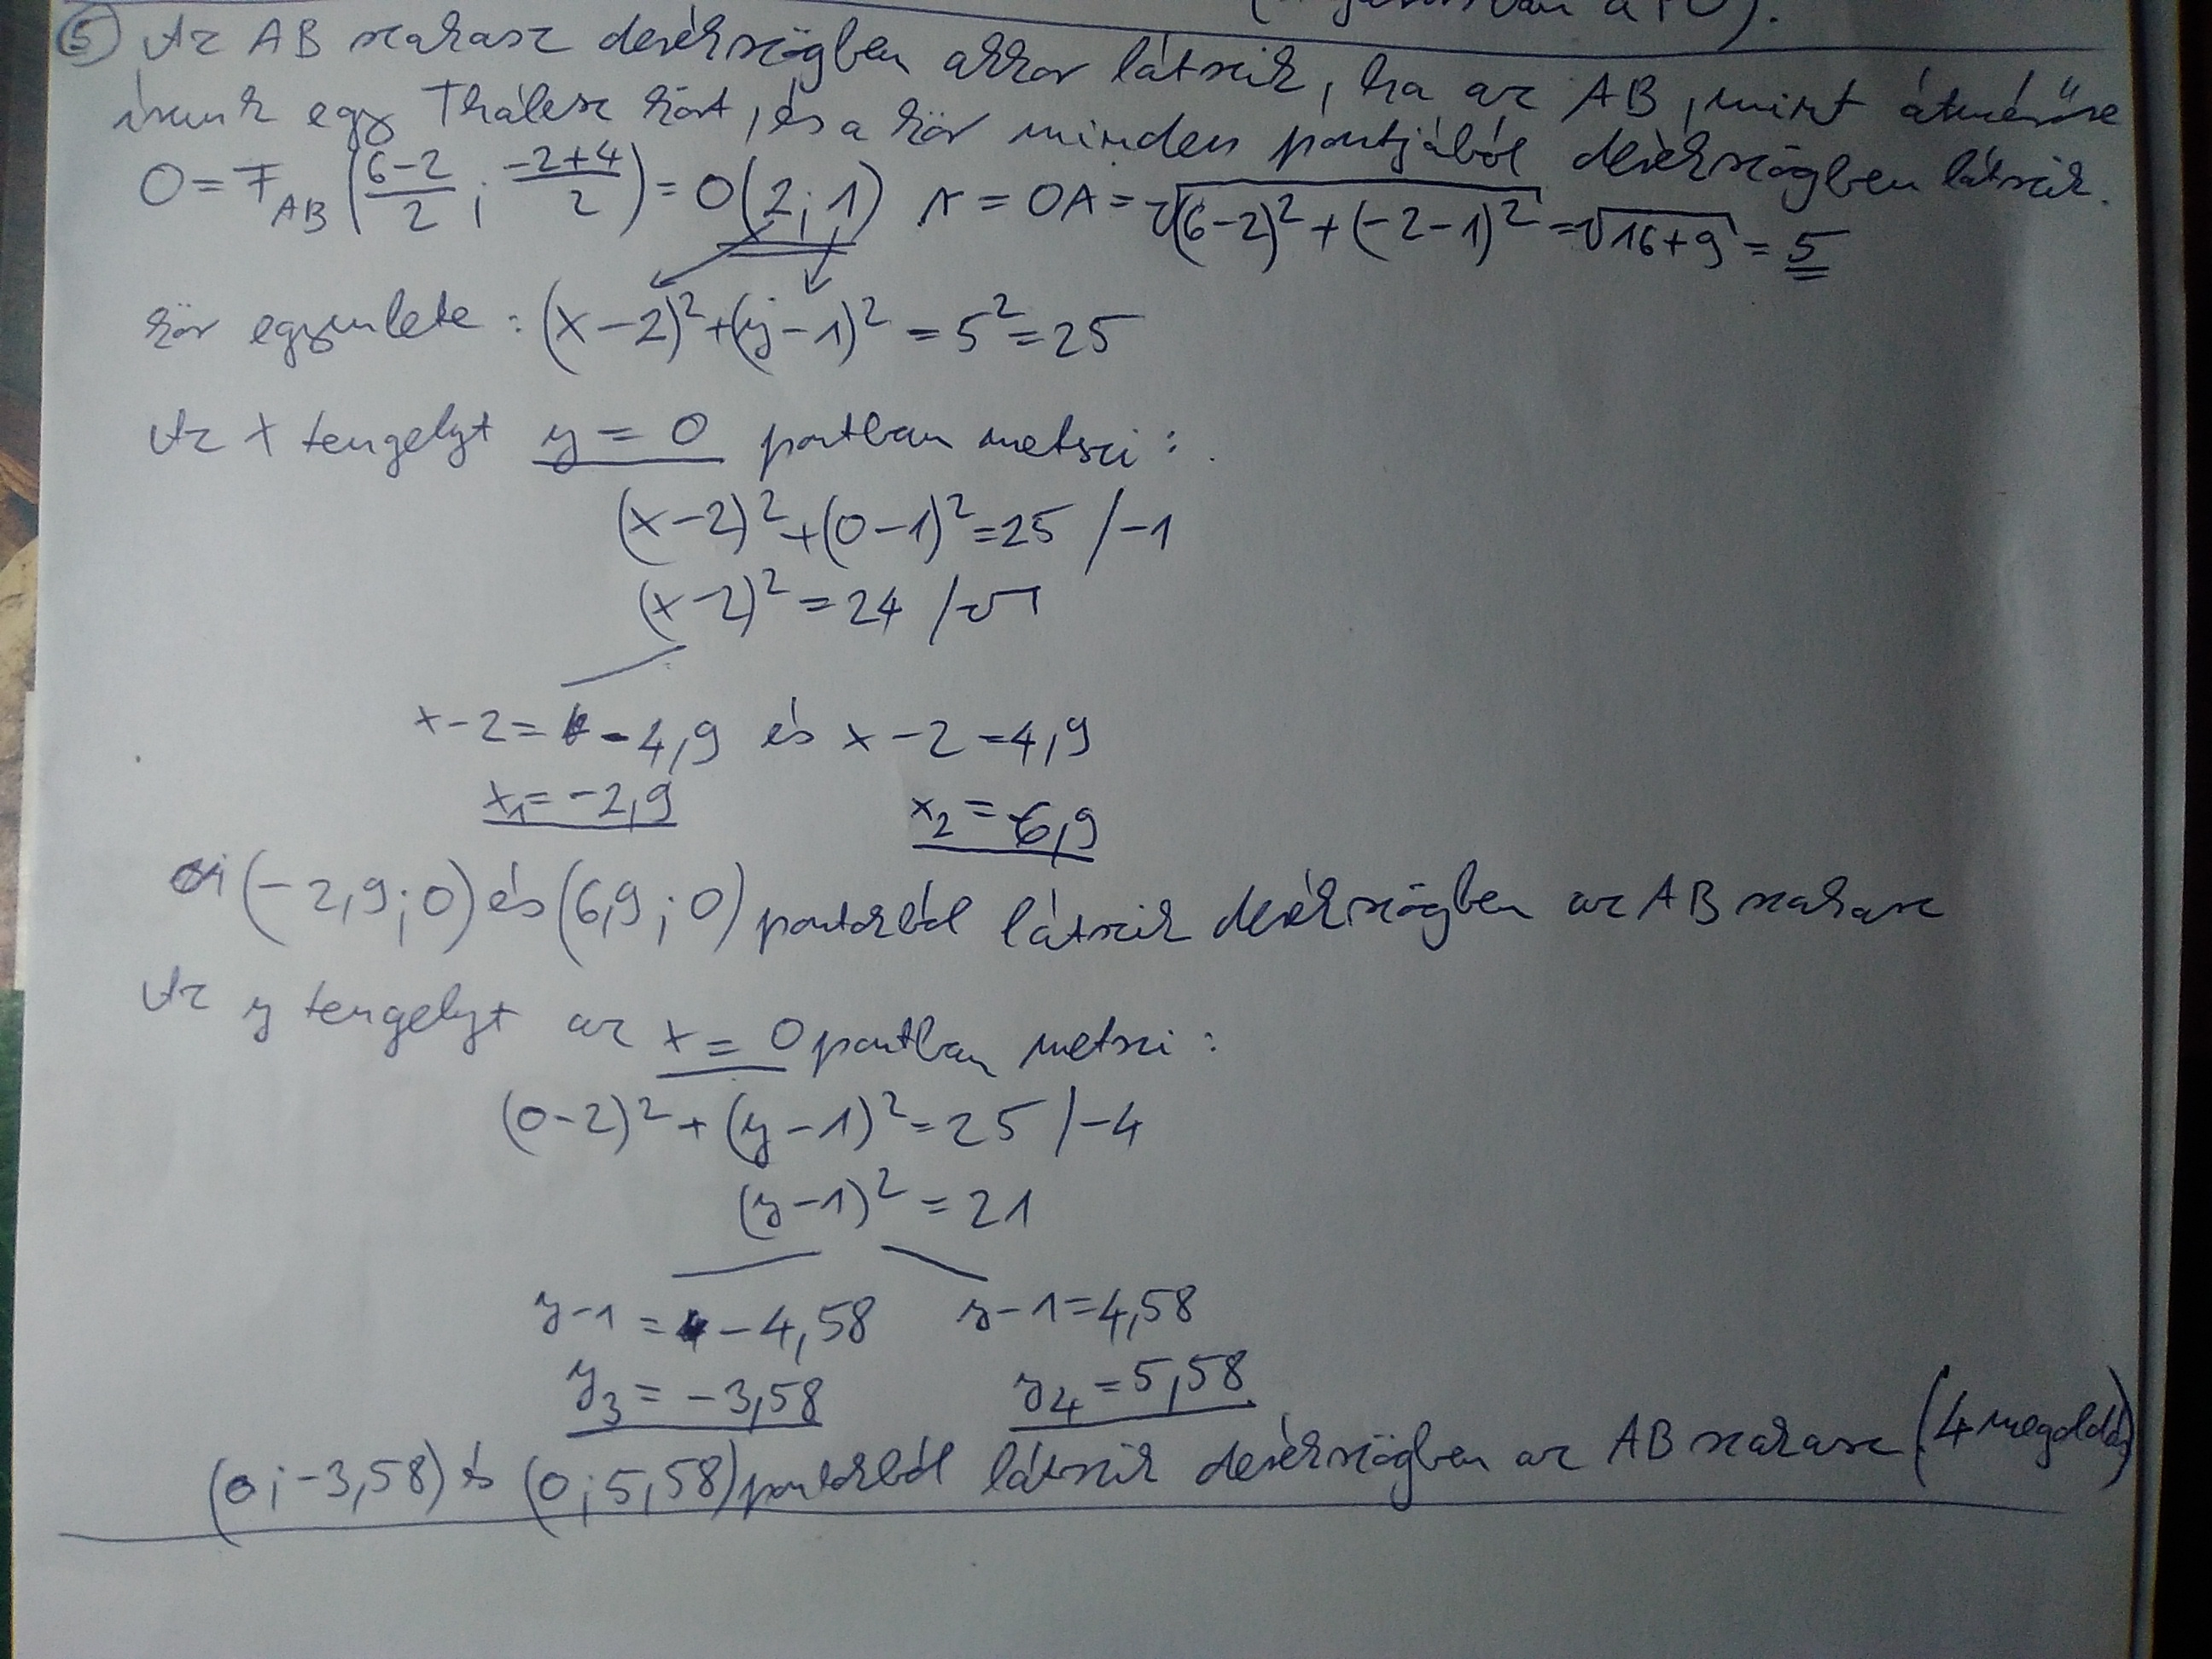 ⑤ Az AB szakasz derékszögben akkor látszik, ha az AB, mint átmérőre
írunk egy Thálesz kört, és a kör minden pontjából derékszögben látszik.
O = F_AB ((6-2)/2 ; (-2+4)/2) = O(2;1) r = OA = √((6-2)²+(-2-1)²) = √(16+9) = 5
kör egyenlete : (x-2)²+(y-1)² = 5² = 25
Az x tengelyt y = 0 pontban metszi :
(x-2)²+(0-1)² = 25 /-1
(x-2)² = 24 /√
x-2 = -4,9 és x-2 = 4,9
x₁ = -2,9 x₂ = 6,9
(-2,9;0) és (6,9;0) pontokból látszik derékszögben az AB szakasz
Az y tengelyt az x = 0 pontban metszi :
(0-2)² + (y-1)² = 25 /-4
(y-1)² = 21
y-1 = -4,58 y-1 = 4,58
y₃ = -3,58 y₄ = 5,58
(0;-3,58) és (0;5,58) pontokból látszik derékszögben az AB szakasz (4 megoldás)